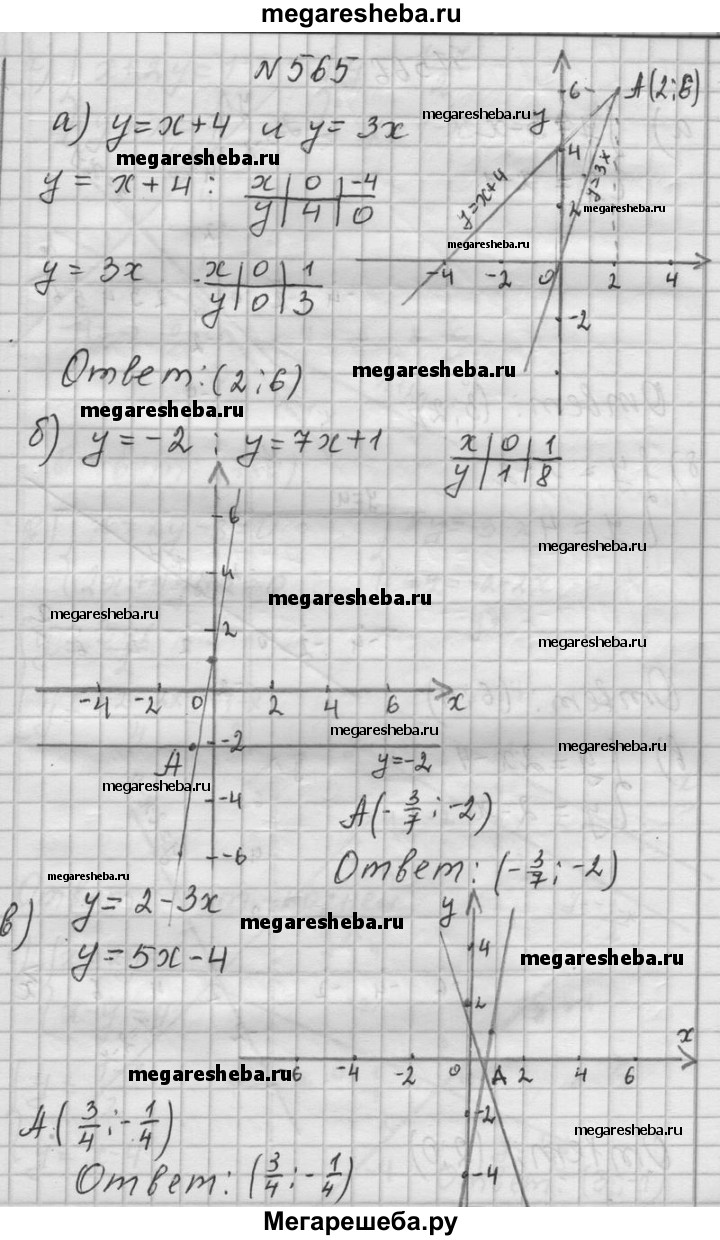 megaresheba.ru
N 565
а) y = x + 4 и y = 3x
megaresheba.ru
y = x + 4 : x | 0 | -4
y | 4 | 0
y = 3x x | 0 | 1
y | 0 | 3
Ответ: (2 ; 6)
megaresheba.ru
y
6
4
2
-2
-4 -2 0 2 4
A(2 ; 6)
y=x+4
y=3x
megaresheba.ru
megaresheba.ru
megaresheba.ru
megaresheba.ru
б) y = -2 ; y = 7x + 1
x | 0 | 1
y | 1 | 8
6
4
2
-4 -2 0 2 4 6 x
-2
-4
-6
A
y=-2
megaresheba.ru
megaresheba.ru
megaresheba.ru
megaresheba.ru
megaresheba.ru
megaresheba.ru
megaresheba.ru
A(-3/7 ; -2)
Ответ: (-3/7 ; -2)
megaresheba.ru
в) y = 2 - 3x
y = 5x - 4
megaresheba.ru
megaresheba.ru
y
4
2
x
-6 -4 -2 0 A 2 4 6
-2
-4
megaresheba.ru
megaresheba.ru
megaresheba.ru
A(3/4 ; -1/4)
Ответ: (3/4 ; -1/4)
Мегарешеба.ру